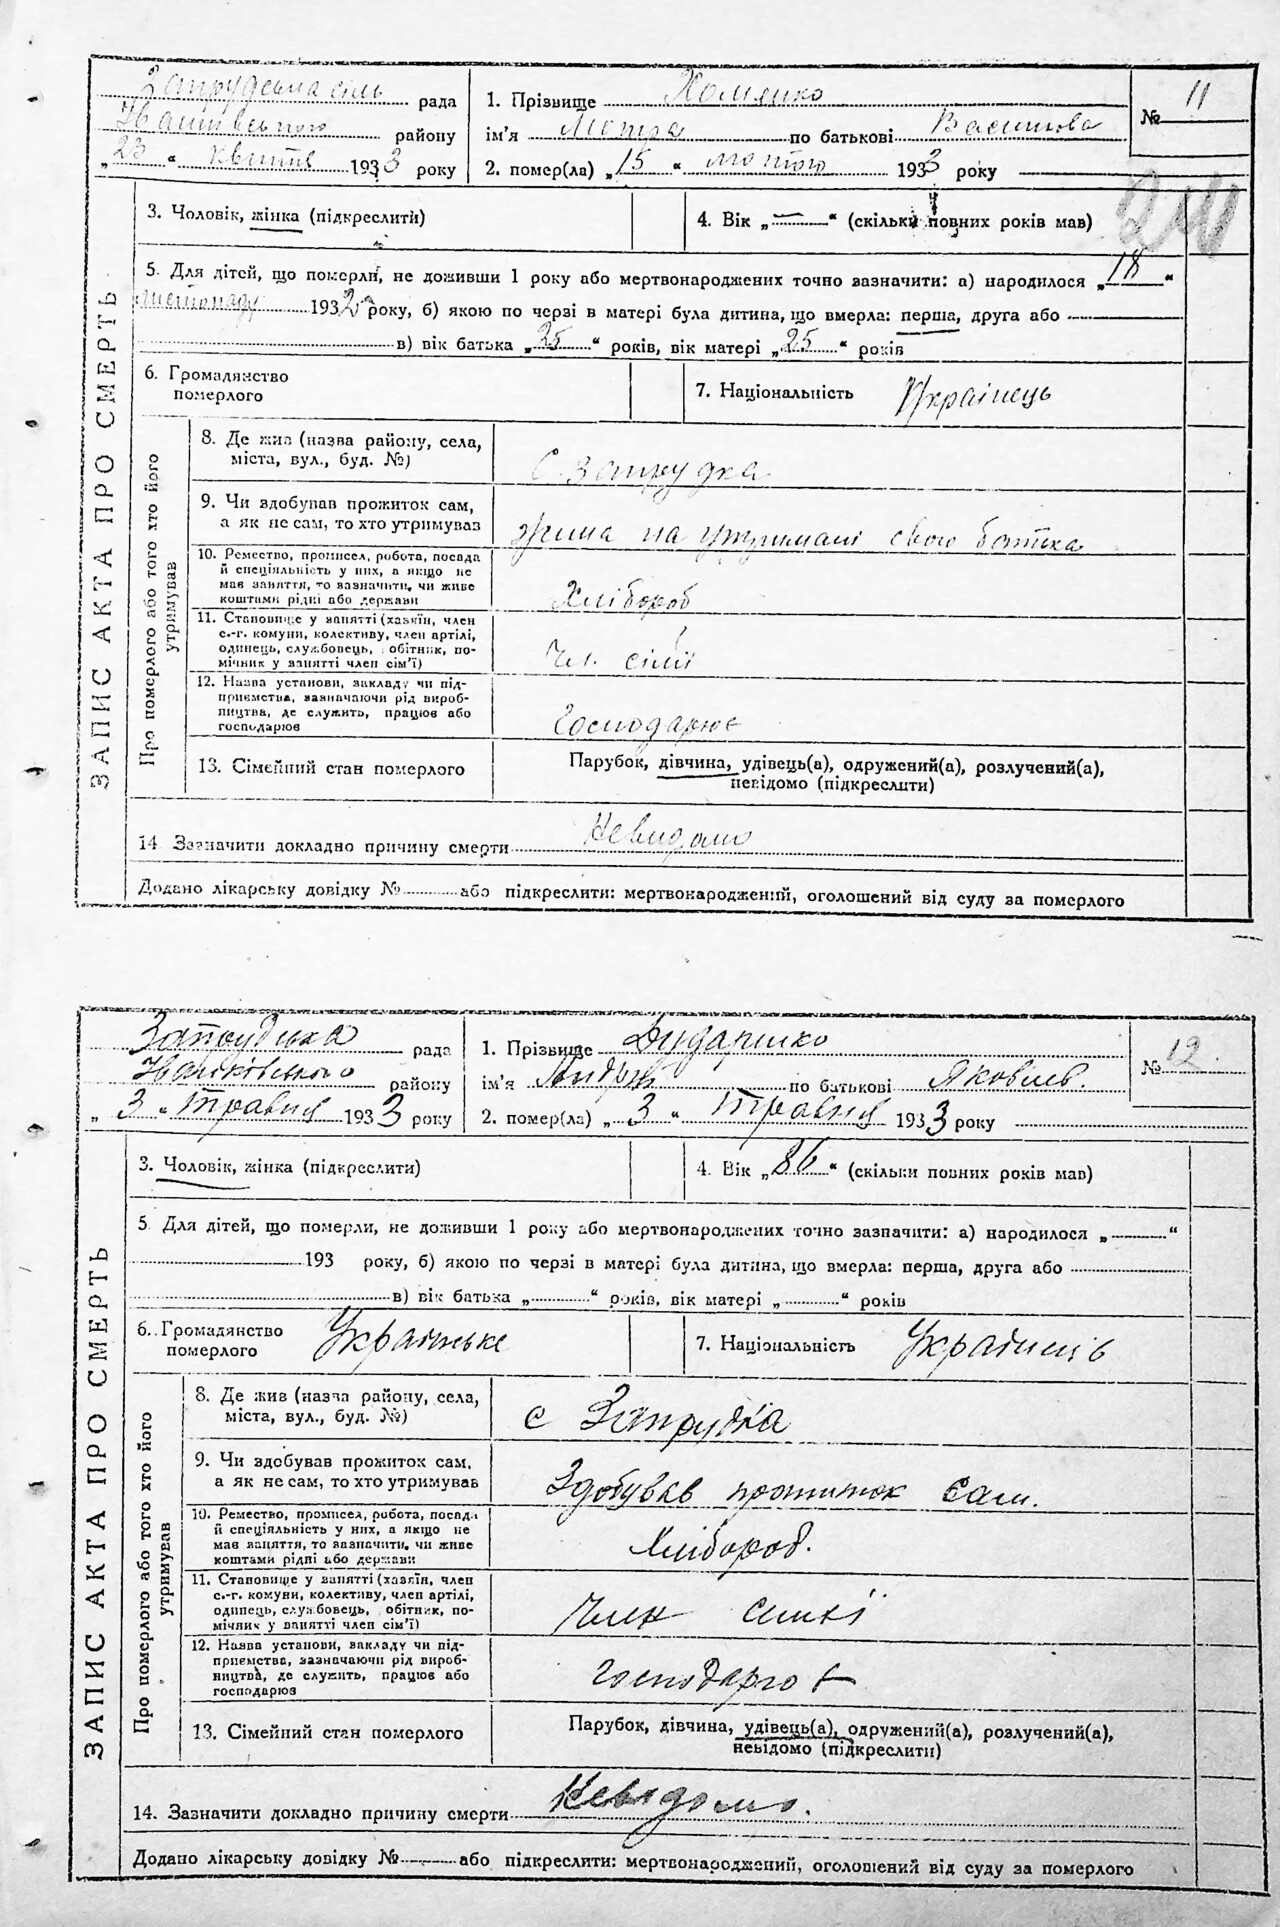 Запрудська сіль рада
Іванківського району
„23“ квітня 1933 року
1. Прізвище Хоменко
ім'я Мотря по батькові Василова
2. помер(ла) „15“ лютого 1933 року
№ 11
3. Чоловік, жінка (підкреслити)
4. Вік „—“ (скільки повних років мав)
5. Для дітей, що померли, не доживши 1 року або мертвонароджених точно зазначити: а) народилося „18“
листопаду 1932 року, б) якою по черзі в матері була дитина, що вмерла: перша, друга або
в) вік батька „25“ років, вік матері „25“ років
6. Громадянство
померлого
7. Національність Українець
ЗАПИС АКТА ПРО СМЕРТЬ
Про померлого або того хто його
утримував
8. Де жив (назва району, села,
міста, вул., буд. №)
с. Запрудка
9. Чи здобував прожиток сам,
а як не сам, то хто утримував
жила на утримані свого батька
10. Ремество, промисел, робота, посада
й спеціяльність у них, а якщо не
мав заняття, то зазначити, чи живе
коштами рідні або держави
Хлібороб
11. Становище у занятті (хазяїн, член
с.-г. комуни, колективу, член артілі,
одинець, службовець, обітник, по-
мічник у занятті член сім'ї)
Чл. сімї
12. Назва установи, закладу чи під-
приємства, зазначаючи рід вироб-
ництва, де служить, працює або
господарює
Господарює
13. Сімейний стан померлого
Парубок, дівчина, удівець(а), одружений(а), розлучений(а),
невідомо (підкреслити)
14 Зазначити докладно причину смерти Невидомо
Додано лікарську довідку № або підкреслити: мертвонароджений, оголошений від суду за померлого
Запрудська рада
Іванківського району
„3“ травня 1933 року
1. Прізвище Дударенко
ім'я Андрій по батькові Яковлів.
2. помер(ла) „3“ травня 1933 року
№ 12
3. Чоловік, жінка (підкреслити)
4. Вік „86“ (скільки повних років мав)
5. Для дітей, що померли, не доживши 1 року або мертвонароджених точно зазначити: а) народилося „ “
193 року, б) якою по черзі в матері була дитина, що вмерла: перша, друга або
в) вік батька „ “ років, вік матері „ “ років
6. Громадянство
померлого
Українське
7. Національність Українець
ЗАПИС АКТА ПРО СМЕРТЬ
Про померлого або того хто його
утримував
8. Де жив (назва району, села,
міста, вул., буд. №)
с Запрудка
9. Чи здобував прожиток сам,
а як не сам, то хто утримував
Здобував прожиток сам.
10. Ремество, промисел, робота, посада
й спеціяльність у них, а якщо не
мав заняття, то зазначити, чи живе
коштами рідні або держави
Хлібороб.
11. Становище у занятті (хазяїн, член
с.-г. комуни, колективу, член артілі,
одинець, службовець, обітник, по-
мічник у занятті член сім'ї)
Член симї
12. Назва установи, закладу чи під-
приємства, зазначаючи рід вироб-
ництва, де служить, працює або
господарює
Господарює
13. Сімейний стан померлого
Парубок, дівчина, удівець(а), одружений(а), розлучений(а),
невідомо (підкреслити)
14. Зазначити докладно причину смерти Невідомо.
Додано лікарську довідку № або підкреслити: мертвонароджений, оголошений від суду за померлого